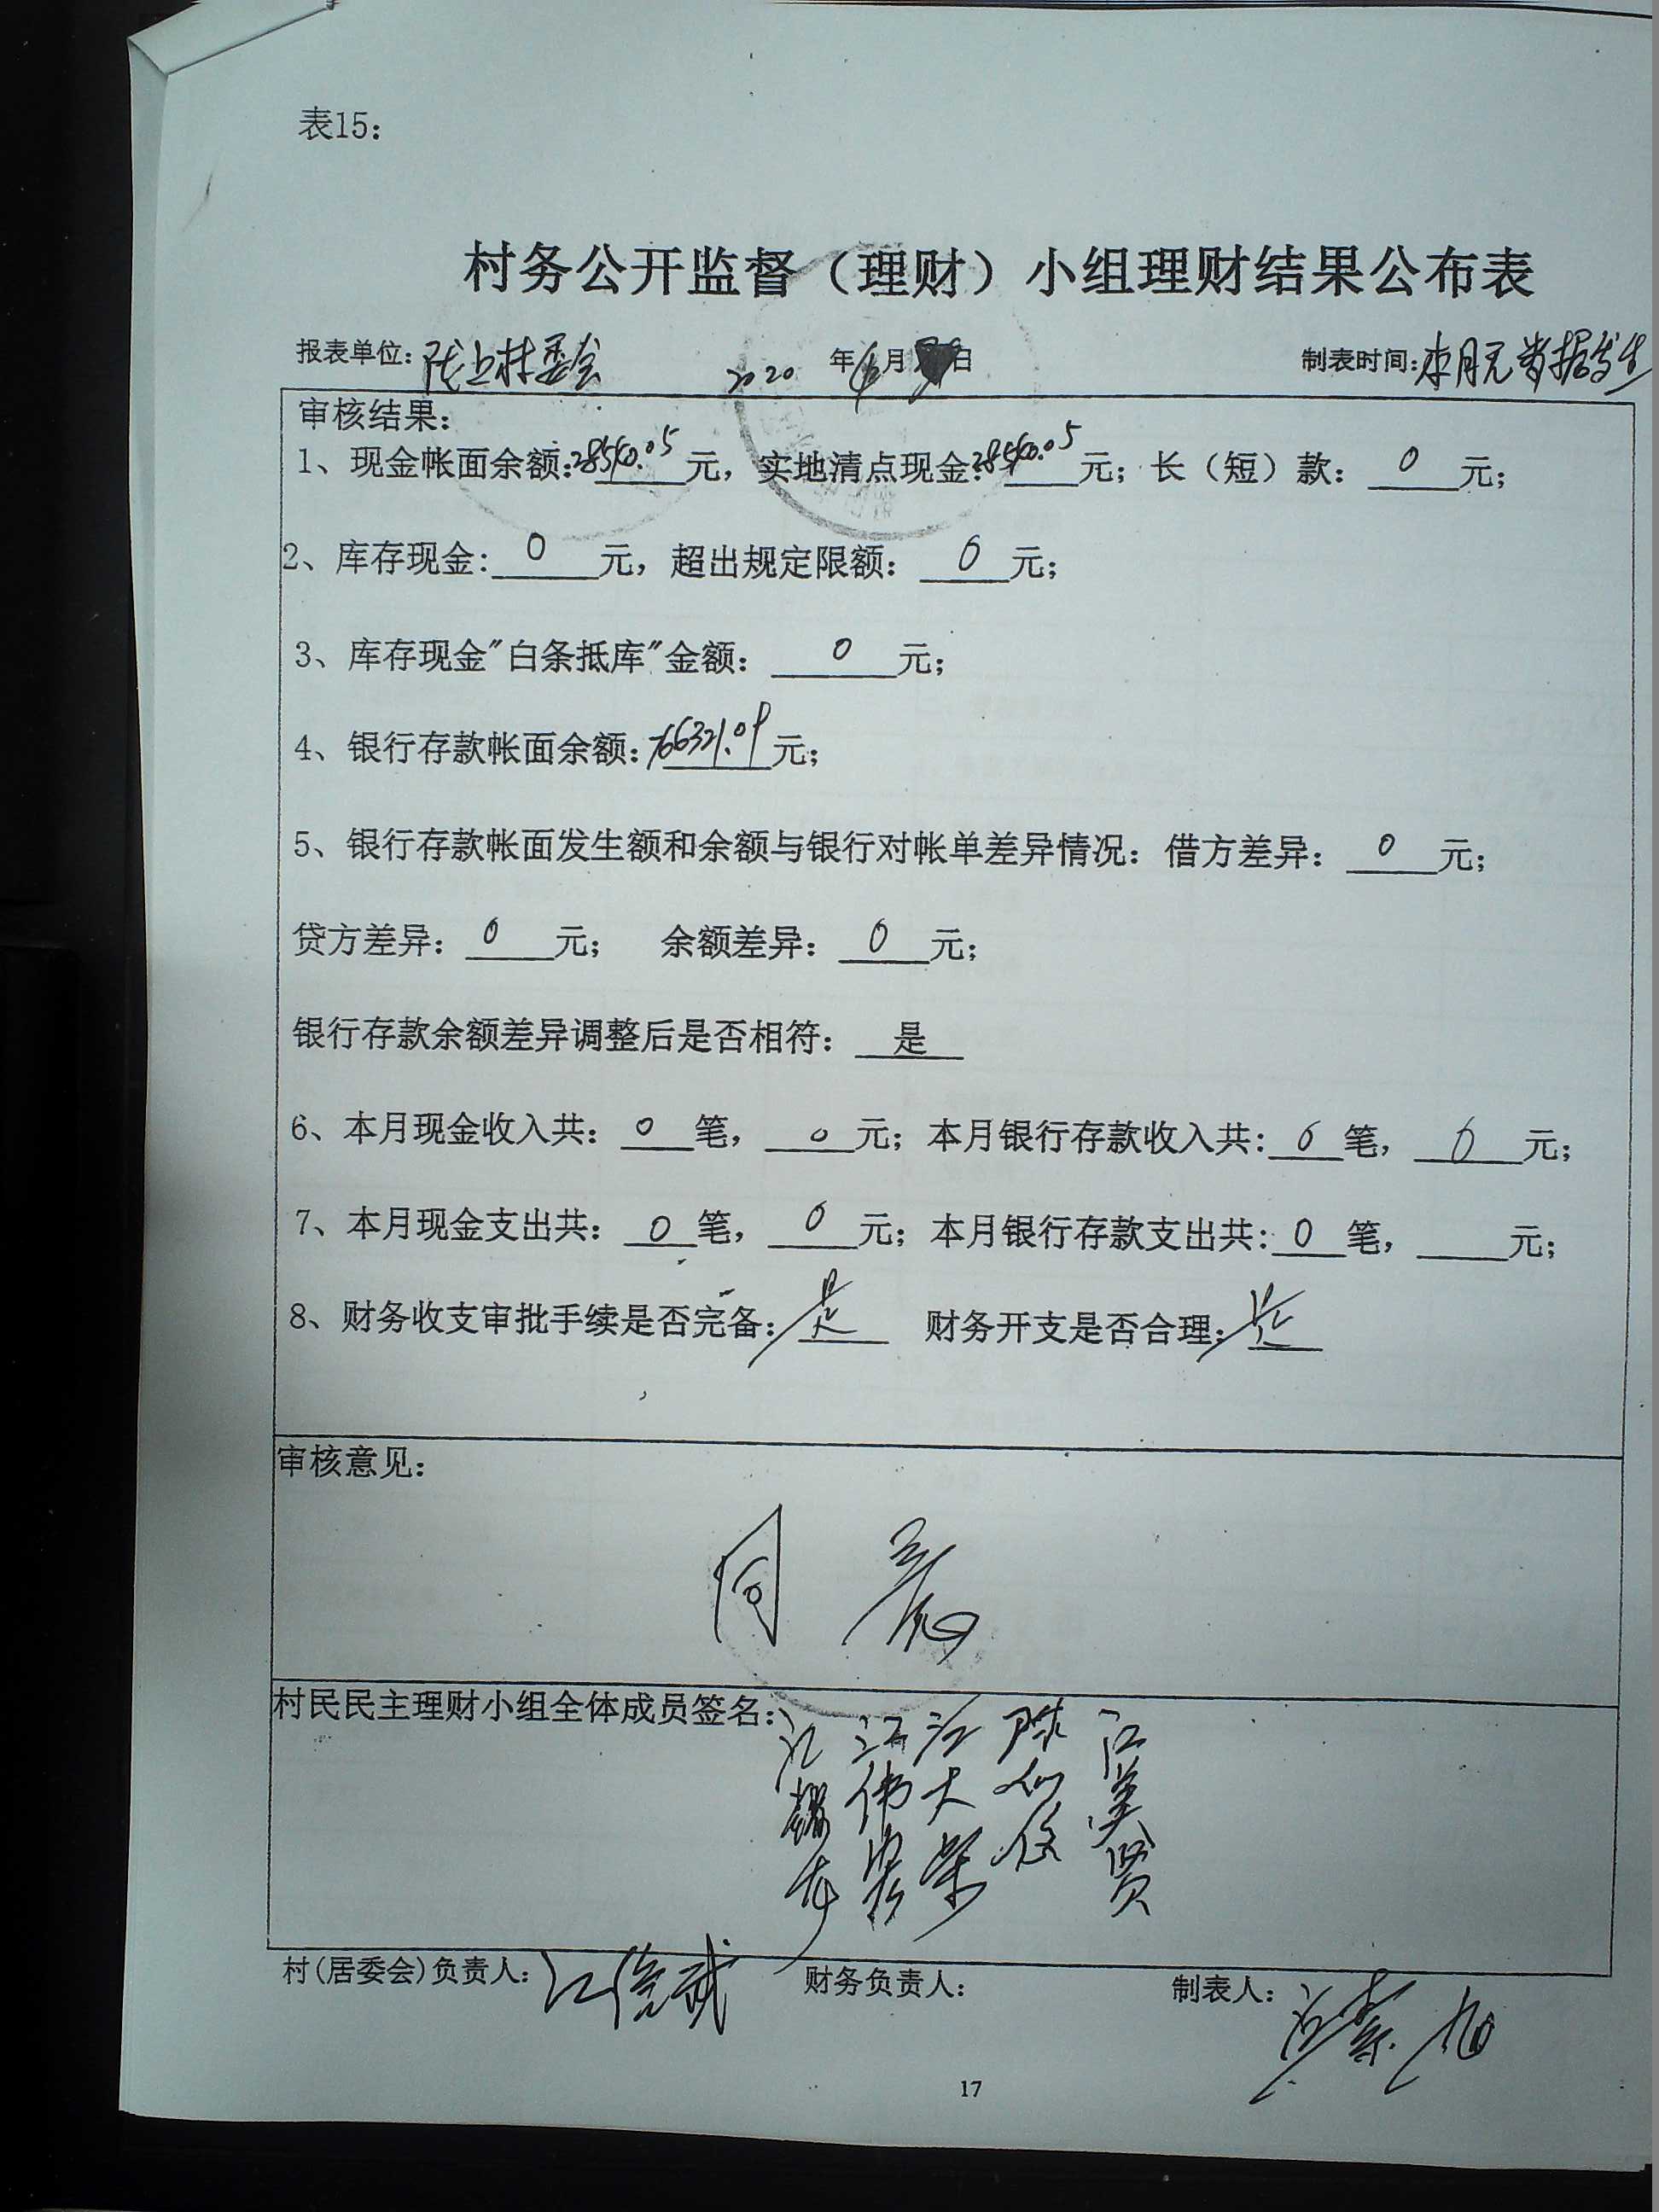 表15：
村务公开监督（理财）小组理财结果公布表
报表单位：陇上村委会 2020 年 月 日 制表时间：本月无当据发生
审核结果：
1、现金帐面余额：28540.05元，实地清点现金：28540.05元；长（短）款：0元；
2、库存现金：0元，超出规定限额：0元；
3、库存现金"白条抵库"金额：0元；
4、银行存款帐面余额：766321.09元；
5、银行存款帐面发生额和余额与银行对帐单差异情况：借方差异：0元；
贷方差异：0元； 余额差异：0元；
银行存款余额差异调整后是否相符：是
6、本月现金收入共：0笔，0元；本月银行存款收入共：0笔，0元；
7、本月现金支出共：0笔，0元；本月银行存款支出共：0笔，元；
8、财务收支审批手续是否完备：是 财务开支是否合理：是
审核意见：
同意
村民民主理财小组全体成员签名：
江伟宏 江大荣 江美贤
村(居委会)负责人： 财务负责人： 制表人：
17